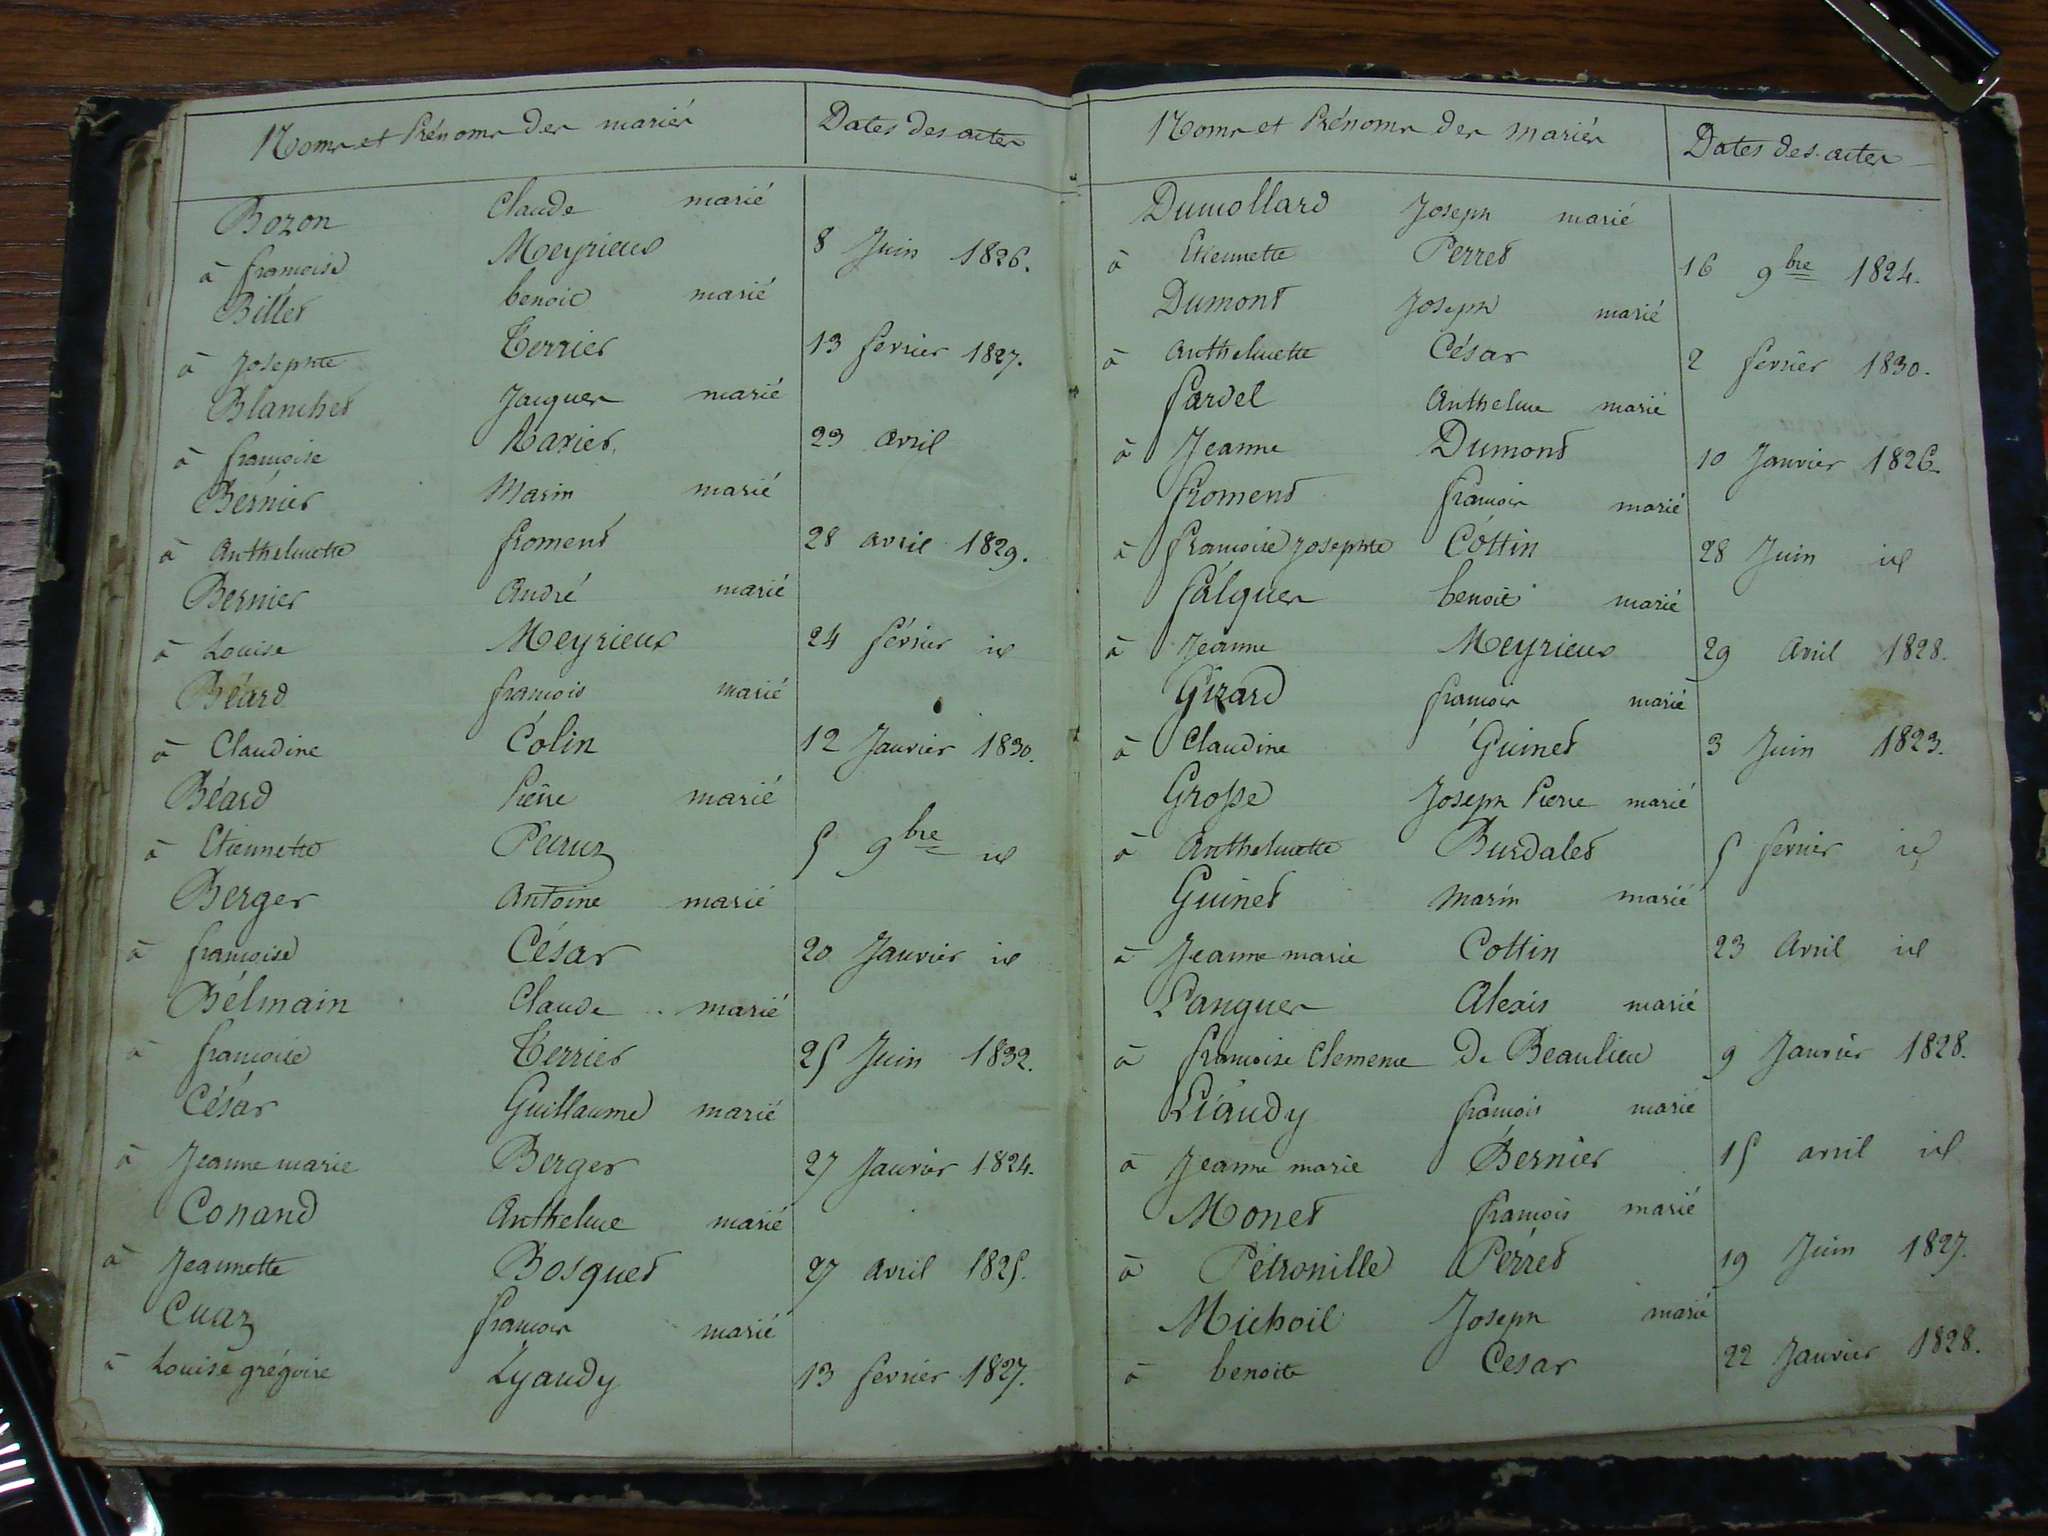 Noms et Prénoms des mariés Dates des actes
Bozon Claude marié
à françoise Meyrieux 8 Juin 1826.
Billet benoit marié
à Josephte Terrier 13 fevrier 1827.
Blanchet Jacques marié
à françoise Ravier 23 avril
Bernier Marin marié
à Anthelmette froment 28 avril 1829.
Bernier André marié
à Louise Meyrieux 24 février id
Béard françois marié
à Claudine Colin 12 Janvier 1830.
Béard Pierre marié
à Etiennette 5 9bre id
Berger Antoine marié
à françoise César 20 Janvier id
Bélmain Claude marié
à françoise Terrier 25 Juin 1832.
César Guillaume marié
à Jeanne marie Berger 27 Janvier 1824.
Conand Anthelme marié
à Jeannette Bosquet 27 avril 1825.
Cuaz françois marié
à Louise grégoire Lyaudy 13 fevrier 1827.
Noms et Prénoms des mariés Dates des actes
Dumollard Joseph marié
à Etiennette Perret 16 9bre 1824.
Dumont Joseph marié
à Anthelmette César 2 fevrier 1830.
fardel Anthelme marié
à Jeanne Dumont 10 Janvier 1826.
froment françois marié
à françoise Josephte Cottin 28 Juin id
falques benoit marié
à Jeanne Meyrieux 29 Avril 1828.
Girard françois marié
à Claudine Guinet 3 Juin 1823.
Grosse Joseph Pierre marié
à Anthelmette Burdalet 5 fevrier id
Guinet Marin marié
à Jeanne marie Cottin 23 Avril id
Panques Alexis marié
à françoise Clemence De Beaulieu 9 Janvier 1828.
Liaudy françois marié
à Jeanne marie Bernier 15 avril id
Monet françois marié
à Pétronille Perret 19 Juin 1827.
Michoil Joseph marié
à benoite Cesar 22 Janvier 1828.